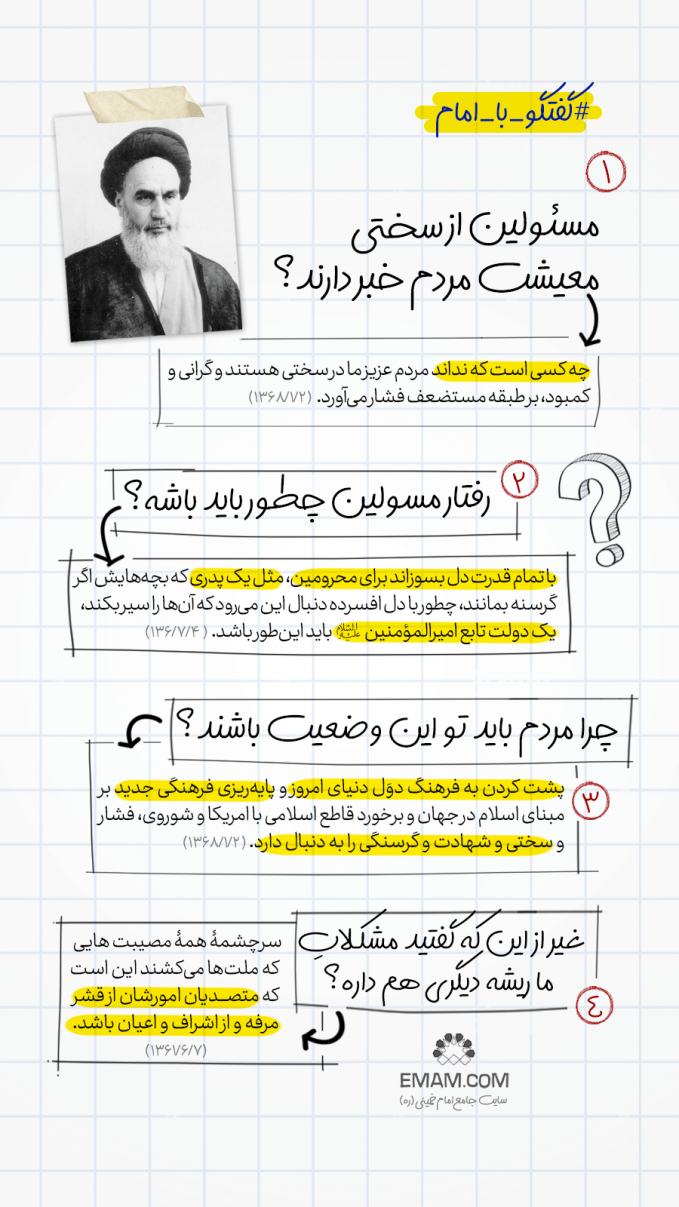 #گفتگو_با_امام
۱
مسئولین از سختی
معیشت مردم خبر دارند؟
چه کسی است که نداند مردم عزیز ما در سختی هستند و گرانی و
کمبود، بر طبقه مستضعف فشار می‌آورد. (۱۳۶۸/۱/۲)
۲
رفتار مسولین چطور باید باشه؟
با تمام قدرت دل بسوزاند برای محرومین، مثل یک پدری که بچه‌هایش اگر
گرسنه بمانند، چطور با دل افسرده دنبال این می‌رود که آن‌ها را سیر بکند،
یک دولت تابع امیرالمؤمنین علیه‌السلام باید این‌طور باشد. (۱۳۶/۷/۴)
چرا مردم باید تو این وضعیت باشند؟
۳
پشت کردن به فرهنگ دوَل دنیای امروز و پایه‌ریزی فرهنگی جدید بر
مبنای اسلام در جهان و برخورد قاطع اسلامی با امریکا و شوروی، فشار
و سختی و شهادت و گرسنگی را به دنبال دارد. (۱۳۶۸/۱/۲)
غیر از این که گفتید مشکلاتِ
ما ریشه دیگری هم داره؟
٤
سرچشمهٔ همهٔ مصیبت هایی
که ملت‌ها می‌کشند این است
که متصـدیان امورشان از قشر
مرفه و از اشراف و اعیان باشد.
(۱۳۶۱/۶/۷)
EMAM.COM
سایت جامع امام خمینی (ره)